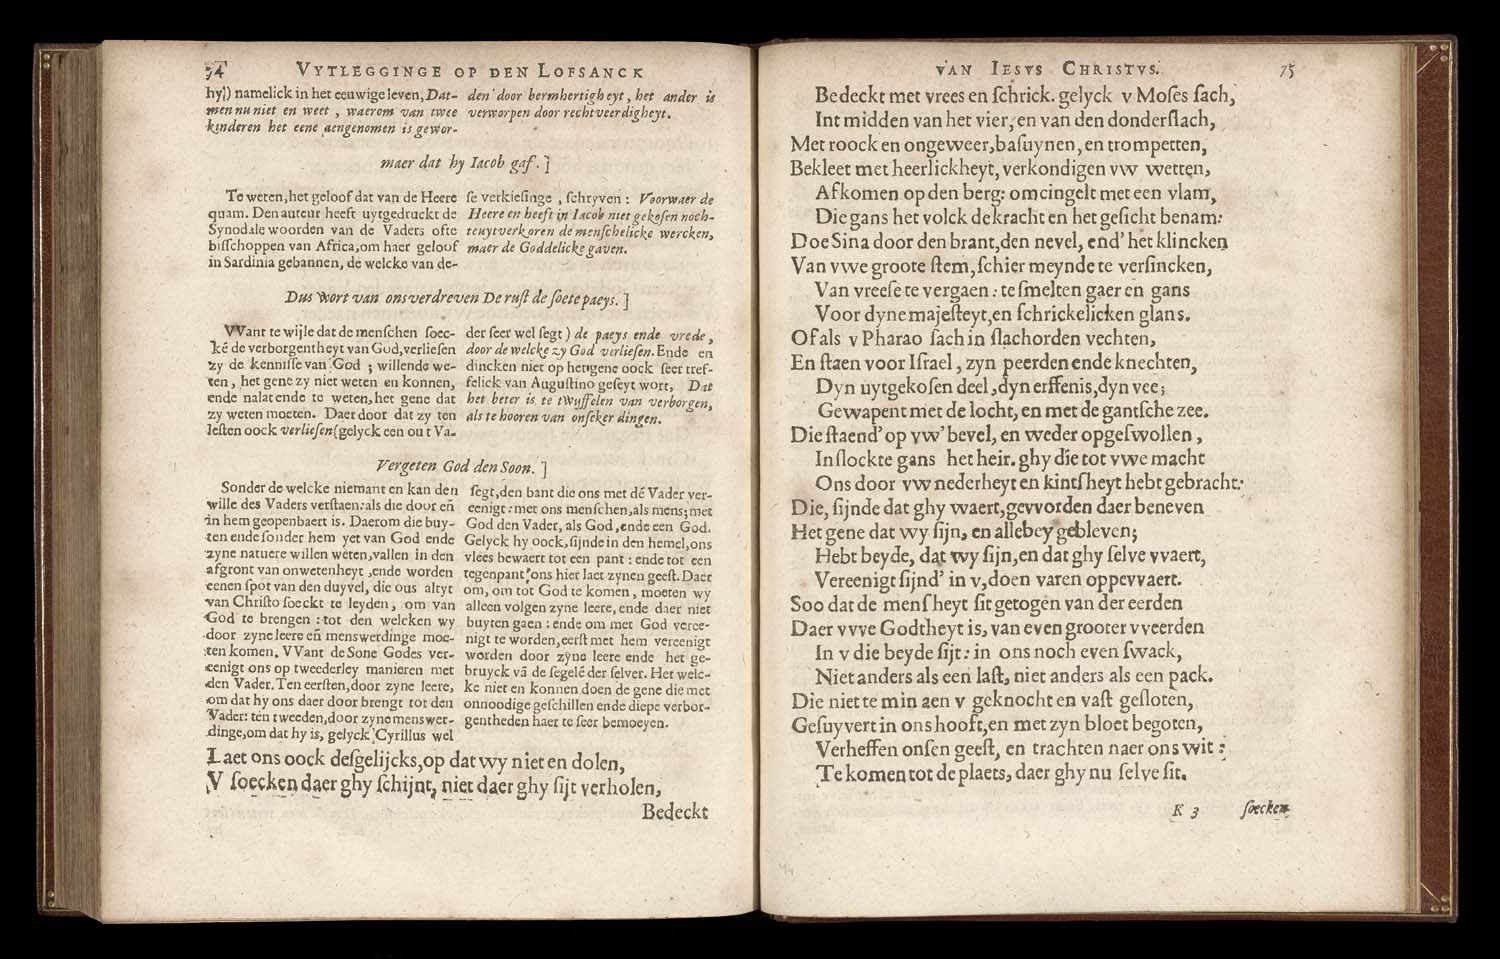 74 VYTLEGGINGE OP DEN LOFSANCK
hy;) namelick in het eeuwige leven, Dat-
men nu niet en weet , waerom van twee
kinderen het eene aengenomen is gewor-
den door bermhertigheyt, het ander is
verworpen door rechtveerdigheyt.
maer dat hy Iacob gaf. ]
Te weten, het geloof dat van de Heere
quam. Den auteur heeft uytgedruckt de
Synodale woorden van de Vaders ofte
bisſchoppen van Africa, om haer geloof
in Sardinia gebannen, de welcke van de-
ſe verkieſinge , ſchryven : Voorwaer de
Heere en heeft in Iacob niet gekoſen noch-
te uytverkoren de menſchelicke wercken,
maer de Goddelicke gaven.
Dus wort van ons verdreven De ruſt de ſoete paeys. ]
VVant te wijle dat de menſchen ſoec-
kē de verborgentheyt van God, verlieſen
zy de kenniſſe van God ; willende we-
ten , het gene zy niet weten en konnen,
ende nalatende te weten, het gene dat
zy weten moeten. Daer door dat zy ten
leſten oock verlieſen (gelyck een out Va-
der ſeer wel ſegt ) de paeys ende vrede ,
door de welcke zy God verlieſen. Ende en
dincken niet op hetgene oock ſeer tref-
felick van Auguſtino geſeyt wort, Dat
het beter is te twyffelen van verborgen,
als te hooren van onſeker dingen.
Vergeten God den Soon. ]
Sonder de welcke niemant en kan den
wille des Vaders verſtaen: als die door eñ
in hem geopenbaert is. Daerom die buy-
ten ende ſonder hem yet van God ende
zyne natuere willen weten, vallen in den
afgront van onwetenheyt , ende worden
eenen ſpot van den duyvel, die ous altyt
van Chriſto ſoeckt te leyden , om van
God te brengen : tot den welcken wy
door zyne leere eñ menswerdinge moe-
ten komen. VVant de Sone Godes ver-
eenigt ons op tweederley manieren met
den Vader. Ten eerſten, door zyne leere,
om dat hy ons daer door brengt tot den
Vader: ten tweeden, door zyne menswer-
dinge, om dat hy is, gelyck Cyrillus wel
ſegt, den bant die ons met dē Vader ver-
eenigt : met ons menſchen, als mens; met
God den Vader, als God , ende een God.
Gelyck hy oock, ſijnde in den hemel, ons
vlees bewaert tot een pant : ende tot een
tegenpant, ons hier laet zynen geeſt. Daer
om, om tot God te komen , moeten wy
alleen volgen zyne leere, ende daer niet
buyten gaen : ende om met God veree-
nigt te worden, eerſt met hem vereenigt
worden door zyne leere ende het ge-
bruyck vā de ſegelē der ſelver. Het welc-
ke niet en konnen doen de gene die met
onnoodige geſchillen ende diepe verbor-
gentheden haer te ſeer bemoeyen.
Laet ons oock deſgelijcks, op dat wy niet en dolen,
V ſoecken daer ghy ſchijnt, niet daer ghy ſijt verholen,
Bedeckt
VAN IESVS CHRISTVS. 75
Bedeckt met vrees en ſchrick. gelyck v Moſes ſach,
Int midden van het vier, en van den donderſlach,
Met roock en ongeweer, baſuynen, en trompetten,
Bekleet met heerlickheyt, verkondigen vw wetten,
Afkomen op den berg: omcingelt met een vlam,
Die gans het volck de kracht en het geſicht benam:
Doe Sina door den brant, den nevel, end' het klincken
Van vwe groote ſtem, ſchier meynde te verſincken,
Van vreeſe te vergaen : te ſmelten gaer en gans
Voor dyne majeſteyt, en ſchrickelicken glans.
Of als v Pharao ſach in ſlachorden vechten,
En ſtaen voor Iſrael , zyn peerden ende knechten,
Dyn uytgekoſen deel , dyn erffenis, dyn vee;
Gewapent met de locht, en met de gantſche zee.
Die ſtaend' op vw' bevel, en weder opgeſwollen ,
Inſlockte gans het heir. ghy die tot vwe macht
Ons door vw nederheyt en kintſheyt hebt gebracht:
Die, ſijnde dat ghy waert, gevvorden daer beneven
Het gene dat wy ſijn, en allebey gebleven;
Hebt beyde, dat wy ſijn, en dat ghy ſelve vvaert,
Vereenigt ſijnd' in v, doen varen oppevvaert.
Soo dat de menſheyt ſit getogen van der eerden
Daer vvve Godtheyt is, van even grooter vveerden
In v die beyde ſijt : in ons noch even ſwack,
Niet anders als een laſt, niet anders als een pack.
Die niet te min aen v geknocht en vaſt geſloten,
Geſuyvert in ons hooft, en met zyn bloet begoten,
Verheffen onſen geeſt, en trachten naer ons wit :
Te komen tot de plaets, daer ghy nu ſelve ſit.
K 3 ſoecken